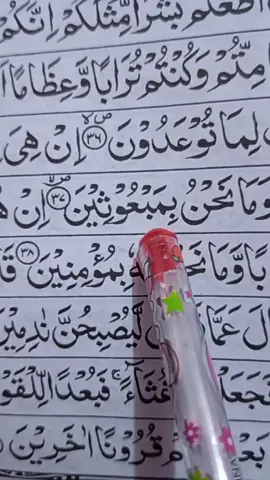 اَطَعْتُمْ بَشَرًا مِّثْلَكُمْ اِنَّكُمْ
مِتُّمْ وَكُنْتُمْ تُرَابًا وَّعِظَامًا
لِمَا تُوْعَدُوْنَ ۝٣٦ اِنْ هِیَ
وَمَا نَحْنُ بِمَبْعُوْثِيْنَ ۝٣٧ اِنْ
بًا وَّمَا نَحْنُ بِمُؤْمِنِيْنَ ۝٣٨
عَمَّا لَّيُصْبِحُنَّ نٰدِمِيْنَ
غُثَآءً ۚ فَبُعْدًا لِّلْقَوْ
قُرُوْنًا اٰخَرِيْنَ